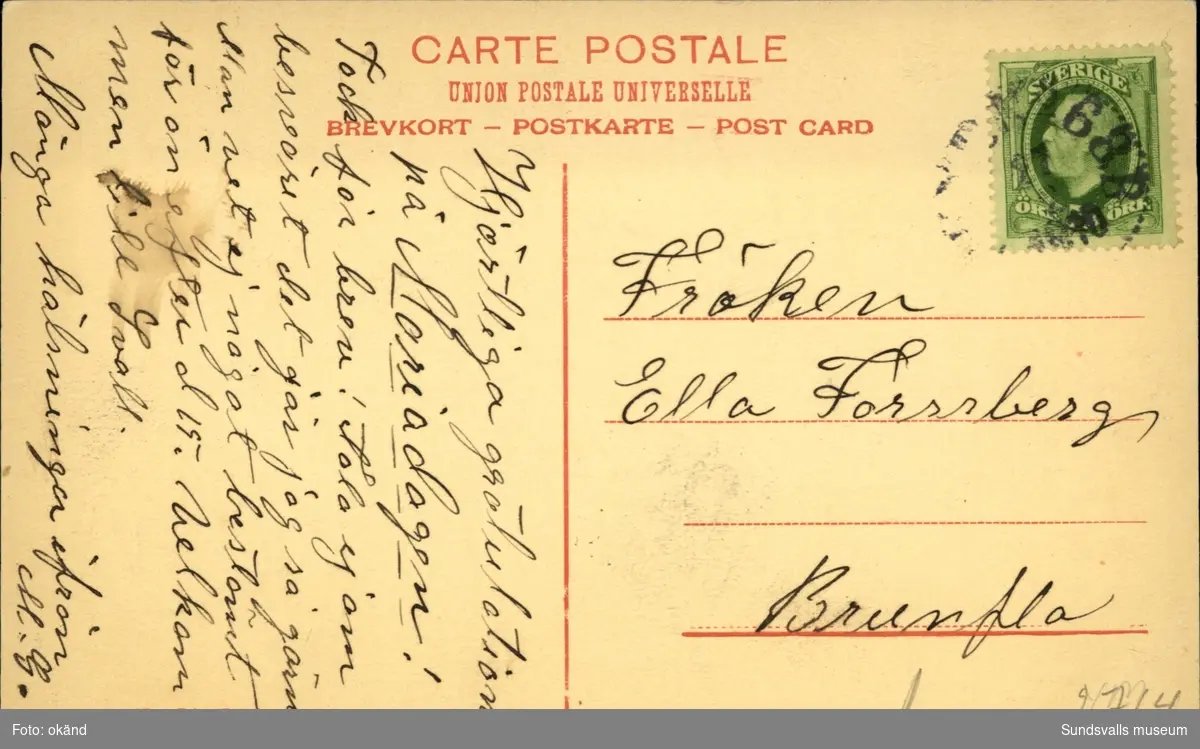 CARTE POSTALE
UNION POSTALE UNIVERSELLE
BREVKORT – POSTKARTE – POST CARD
SVERIGE
ÖRE
ÖRE
Hjärtliga gratulation
på Mariadagen!
Tack för brev! Tala ej om
besväret det gör jag så gärn
Man vet ej något bestämt
förrän efter d 15. Velkom
men till Svall
Många hälsningar ifrån
M. G.
Fröken
Ella Forssberg,
Brunflo
Foto: okänd
Sundsvalls museum